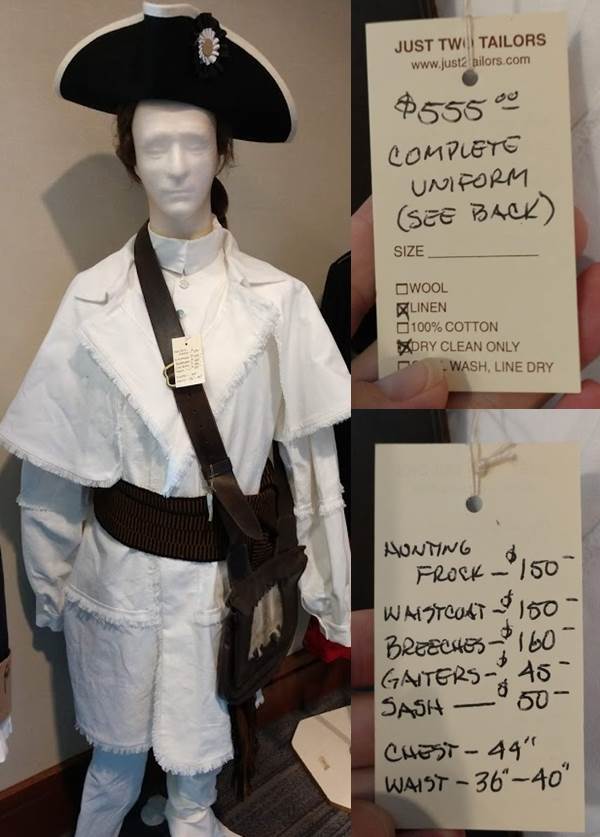 JUST TWO TAILORS
www.just2tailors.com
$555.00
COMPLETE
UNIFORM
(SEE BACK)
SIZE
WOOL
LINEN
100% COTTON
DRY CLEAN ONLY
WASH, LINE DRY
HUNTING
FROCK - $150-
WAISTCOAT - $150-
BREECHES - $160-
GAITERS - $45-
SASH — $50-
CHEST - 44"
WAIST - 36"-40"